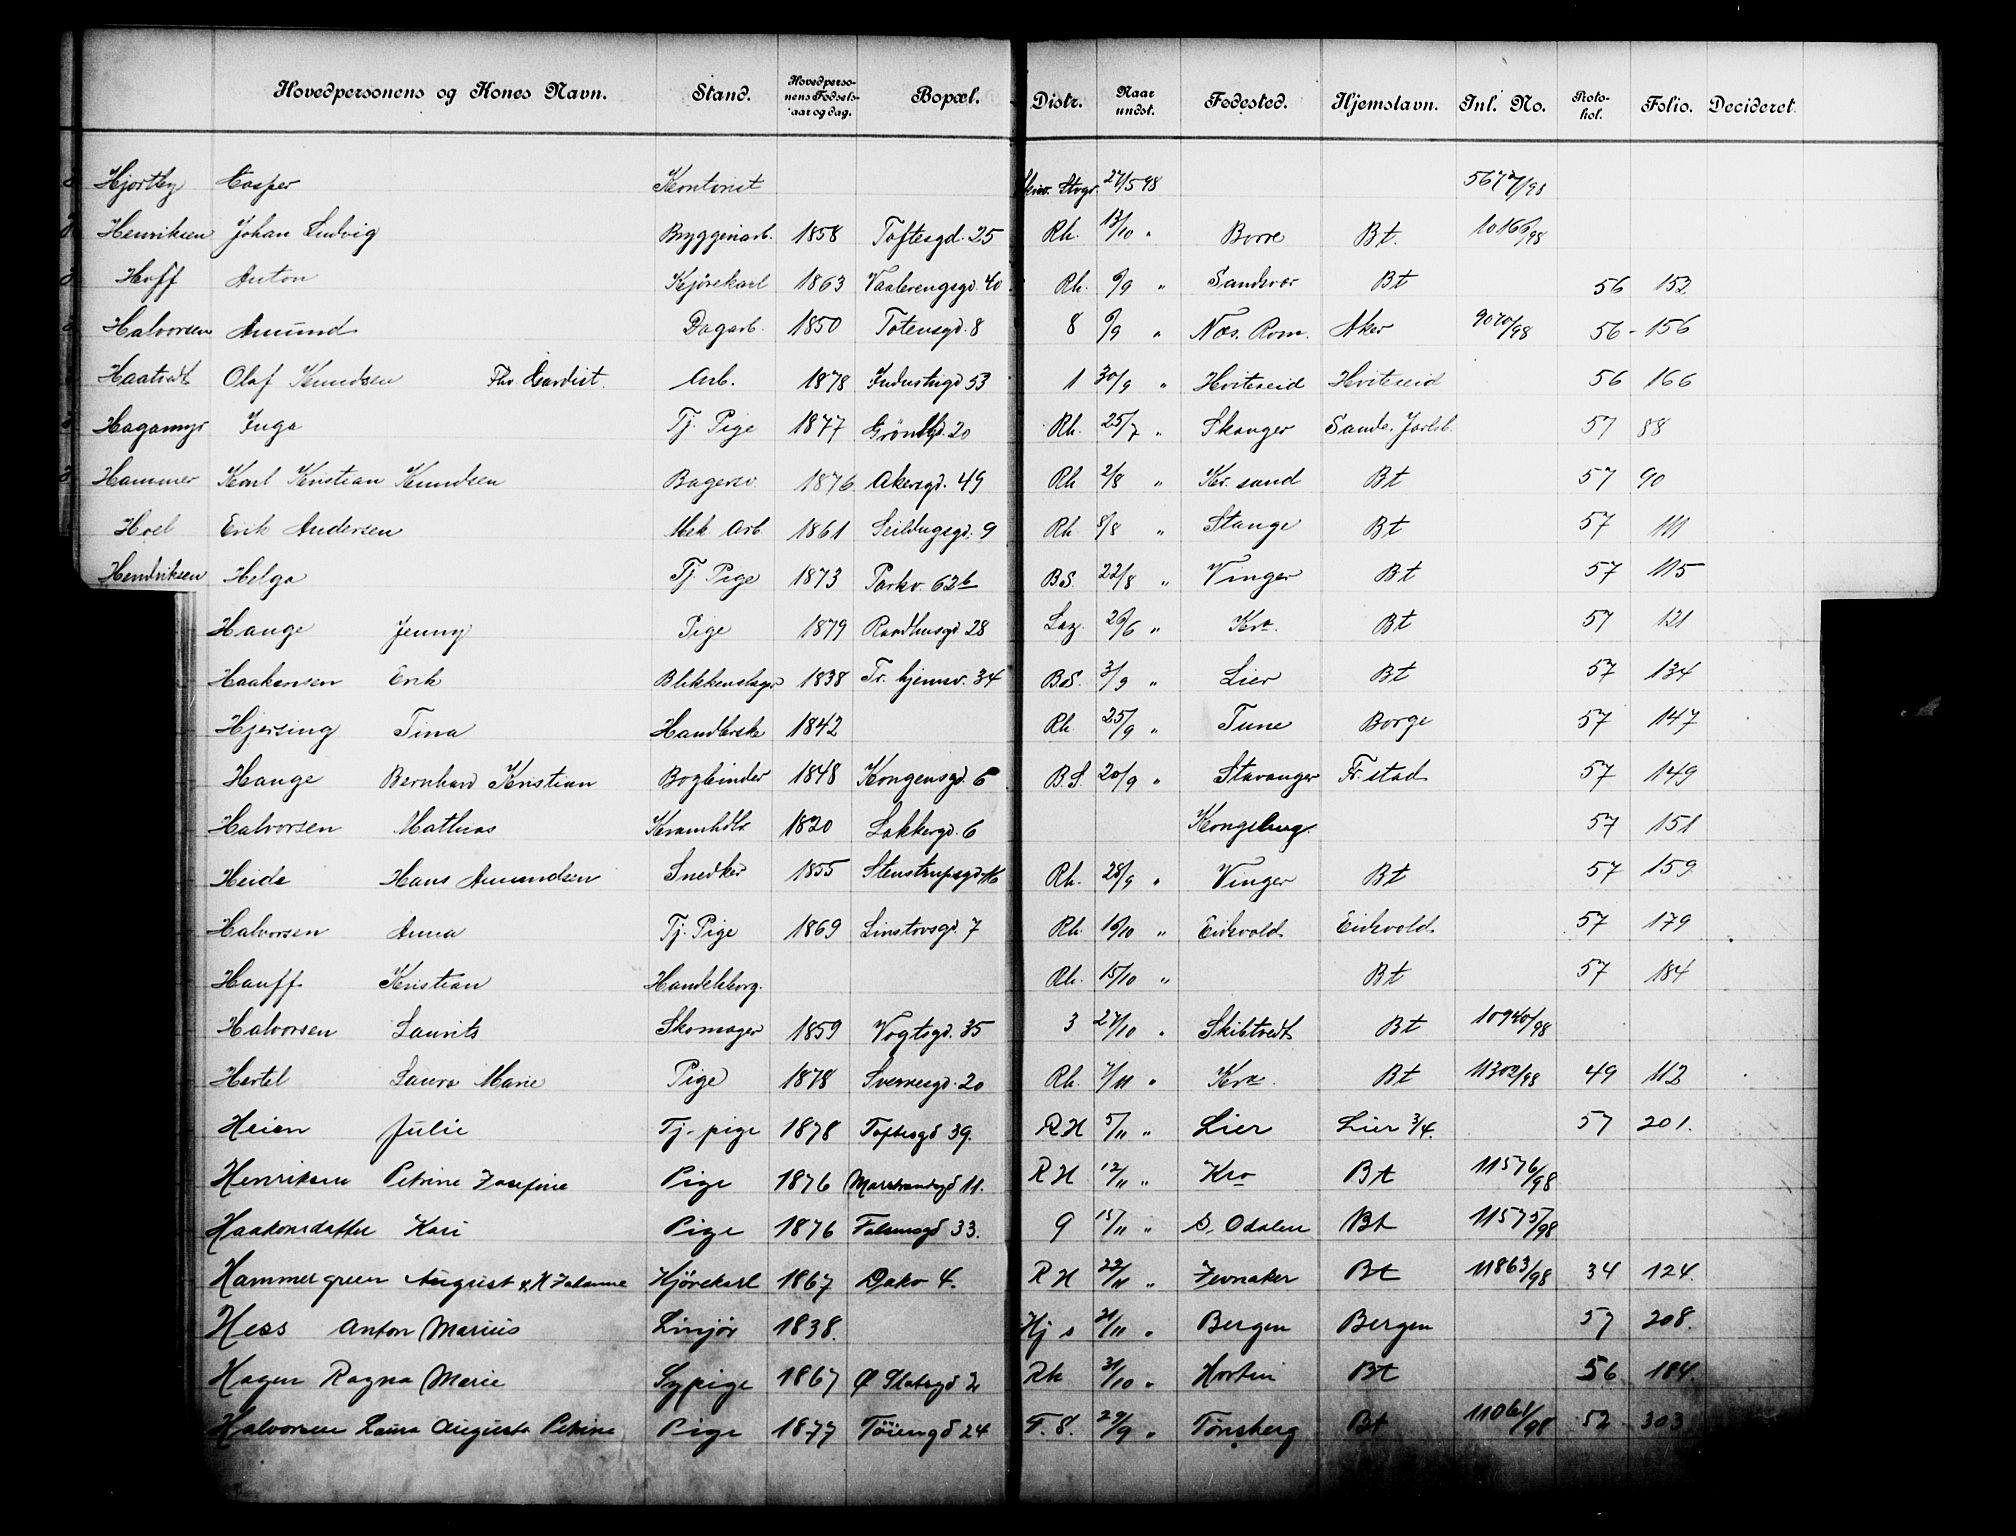 Hovedpersonens og Kones Navn. Stand. Hovedpersonens Fødselsaar og dag. Bopæl. Distr. Naar undst. Fødested. Hjemstavn. Inl. No. Protokol. Folio. Decideret.
Hjortby Casper Kontorist Stvgr. 27/5 98 /98
Henriksen Johan Ludvig Bryggeriarb. 1858 Toftesgd. 25 Rh. 13/10 " Borre Bt. 10166/98
Hoff Anton Kjørekarl 1863 Vaalerengsgd 40 Rh. 6/9 " Sandsvær Bt 56 152
Halvorsen Amund Dagarb. 1850 Totensgd. 8 8 6/9 " Næs. Rom. Aker 9070/98 56 - 156
Haatvedt Olaf Knudsen Fhv. Gardist. Arb. 1878 Industrigd 53 1 30/9 " Hviteseid Hviteseid 56 166
Hagamyr Inga Tj. Pige 1877 Grønlgd. 20 Rh. 25/7 " Skauger Sande. Jarlsb. 57 88
Hammer Karl Kristian Knudsen Bagersv. 1876 Akersgd. 49 Rh 2/8 " Kr. sand Bt 57 90
Hoel Erik Andersen Mek Arb 1861 Seildugsgd. 9 Rh. 8/8 " Stange Bt 57 111
Hendriksen Helga Tj. Pige 1873 Parkv. 62b B.S. 22/8 " Vinger Bt 57 115
Hauge Jenny Pige 1879 Raadhusgd 28 Laz. 26/6 " Kra. Bt 57 121
Haakensen Erik Blikkenslager 1838 Tr. hjemsv. 34 B.S. 3/9 " Lier Bt 57 134
Hjersing Tina Handlerske 1842 Rh 25/9 " Tune Borge 57 147
Hauge Bernhard Kristian Bogbinder 1848 Kongensgd. 6 B.S. 20/9 " Stavanger Fr. stad 57 149
Halvorsen Mathias Kramhdlr 1820 Lakkergd. 6 Kongsberg. 57 151
Heide Hans Amundsen Snedker 1855 Stenstrupsgd 16 Rh. 28/9 " Vinger Bt 57 159
Halvorsen Anna Tj. Pige 1869 Linstovsgd. 7 Rh. 10/10 " Eidsvold Eidsvold 57 179
Hauff Kristian Handelsborg. Rh. 15/10 " Bt 57 184
Halvorsen Laurits Skomager 1859 Vogtsgd. 35 3 27/10 " Skibtvedt Bt 10940/98
Hertel Laura Marie Pige 1878 Sverresgd. 20 Rh. 7/11 " Kra. Bt 11302/98 49 112
Heien Julie Tj. pige 1878 Toftesgd 39. R H 5/11 " Lier Lier 3/4. 57 201.
Henriksen Petrine Josefine Pige 1876 Marstrandsgd 11. R H 12/11 " Kra Bt 11576/98
Haakonsdatter Kari Pige 1876 Falsensgd 33. 9 15/11 " S. Odalen Bt 11575/98
Hammergreen August & H Johanne Kjørekarl 1867 Dakv 4. R H 22/11 " Jevnaker Bt 11863/98 34 124.
Hess Anton Marius Linjør 1838. Hj s 21/11 " Bergen Bergen 57 208.
Hagen Ragna Marie Sypige 1867 Ø Slotsgd 2 Rh 31/10 " Horten Bt 56 184.
Halvorsen Laura Augusta Petrine Pige 1877 Tøiengd 24 F. S. 29/9 " Tønsberg Bt 11061/98 52 303